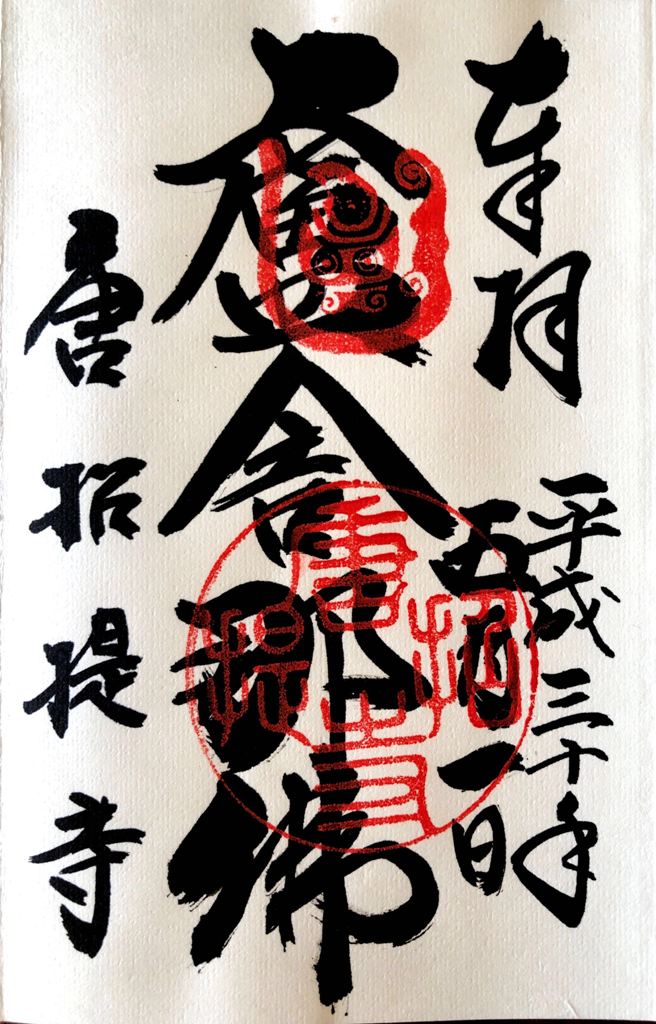 奉拝
平成三十年
五月一日
盧舎那佛
唐招提寺
唐招提寺